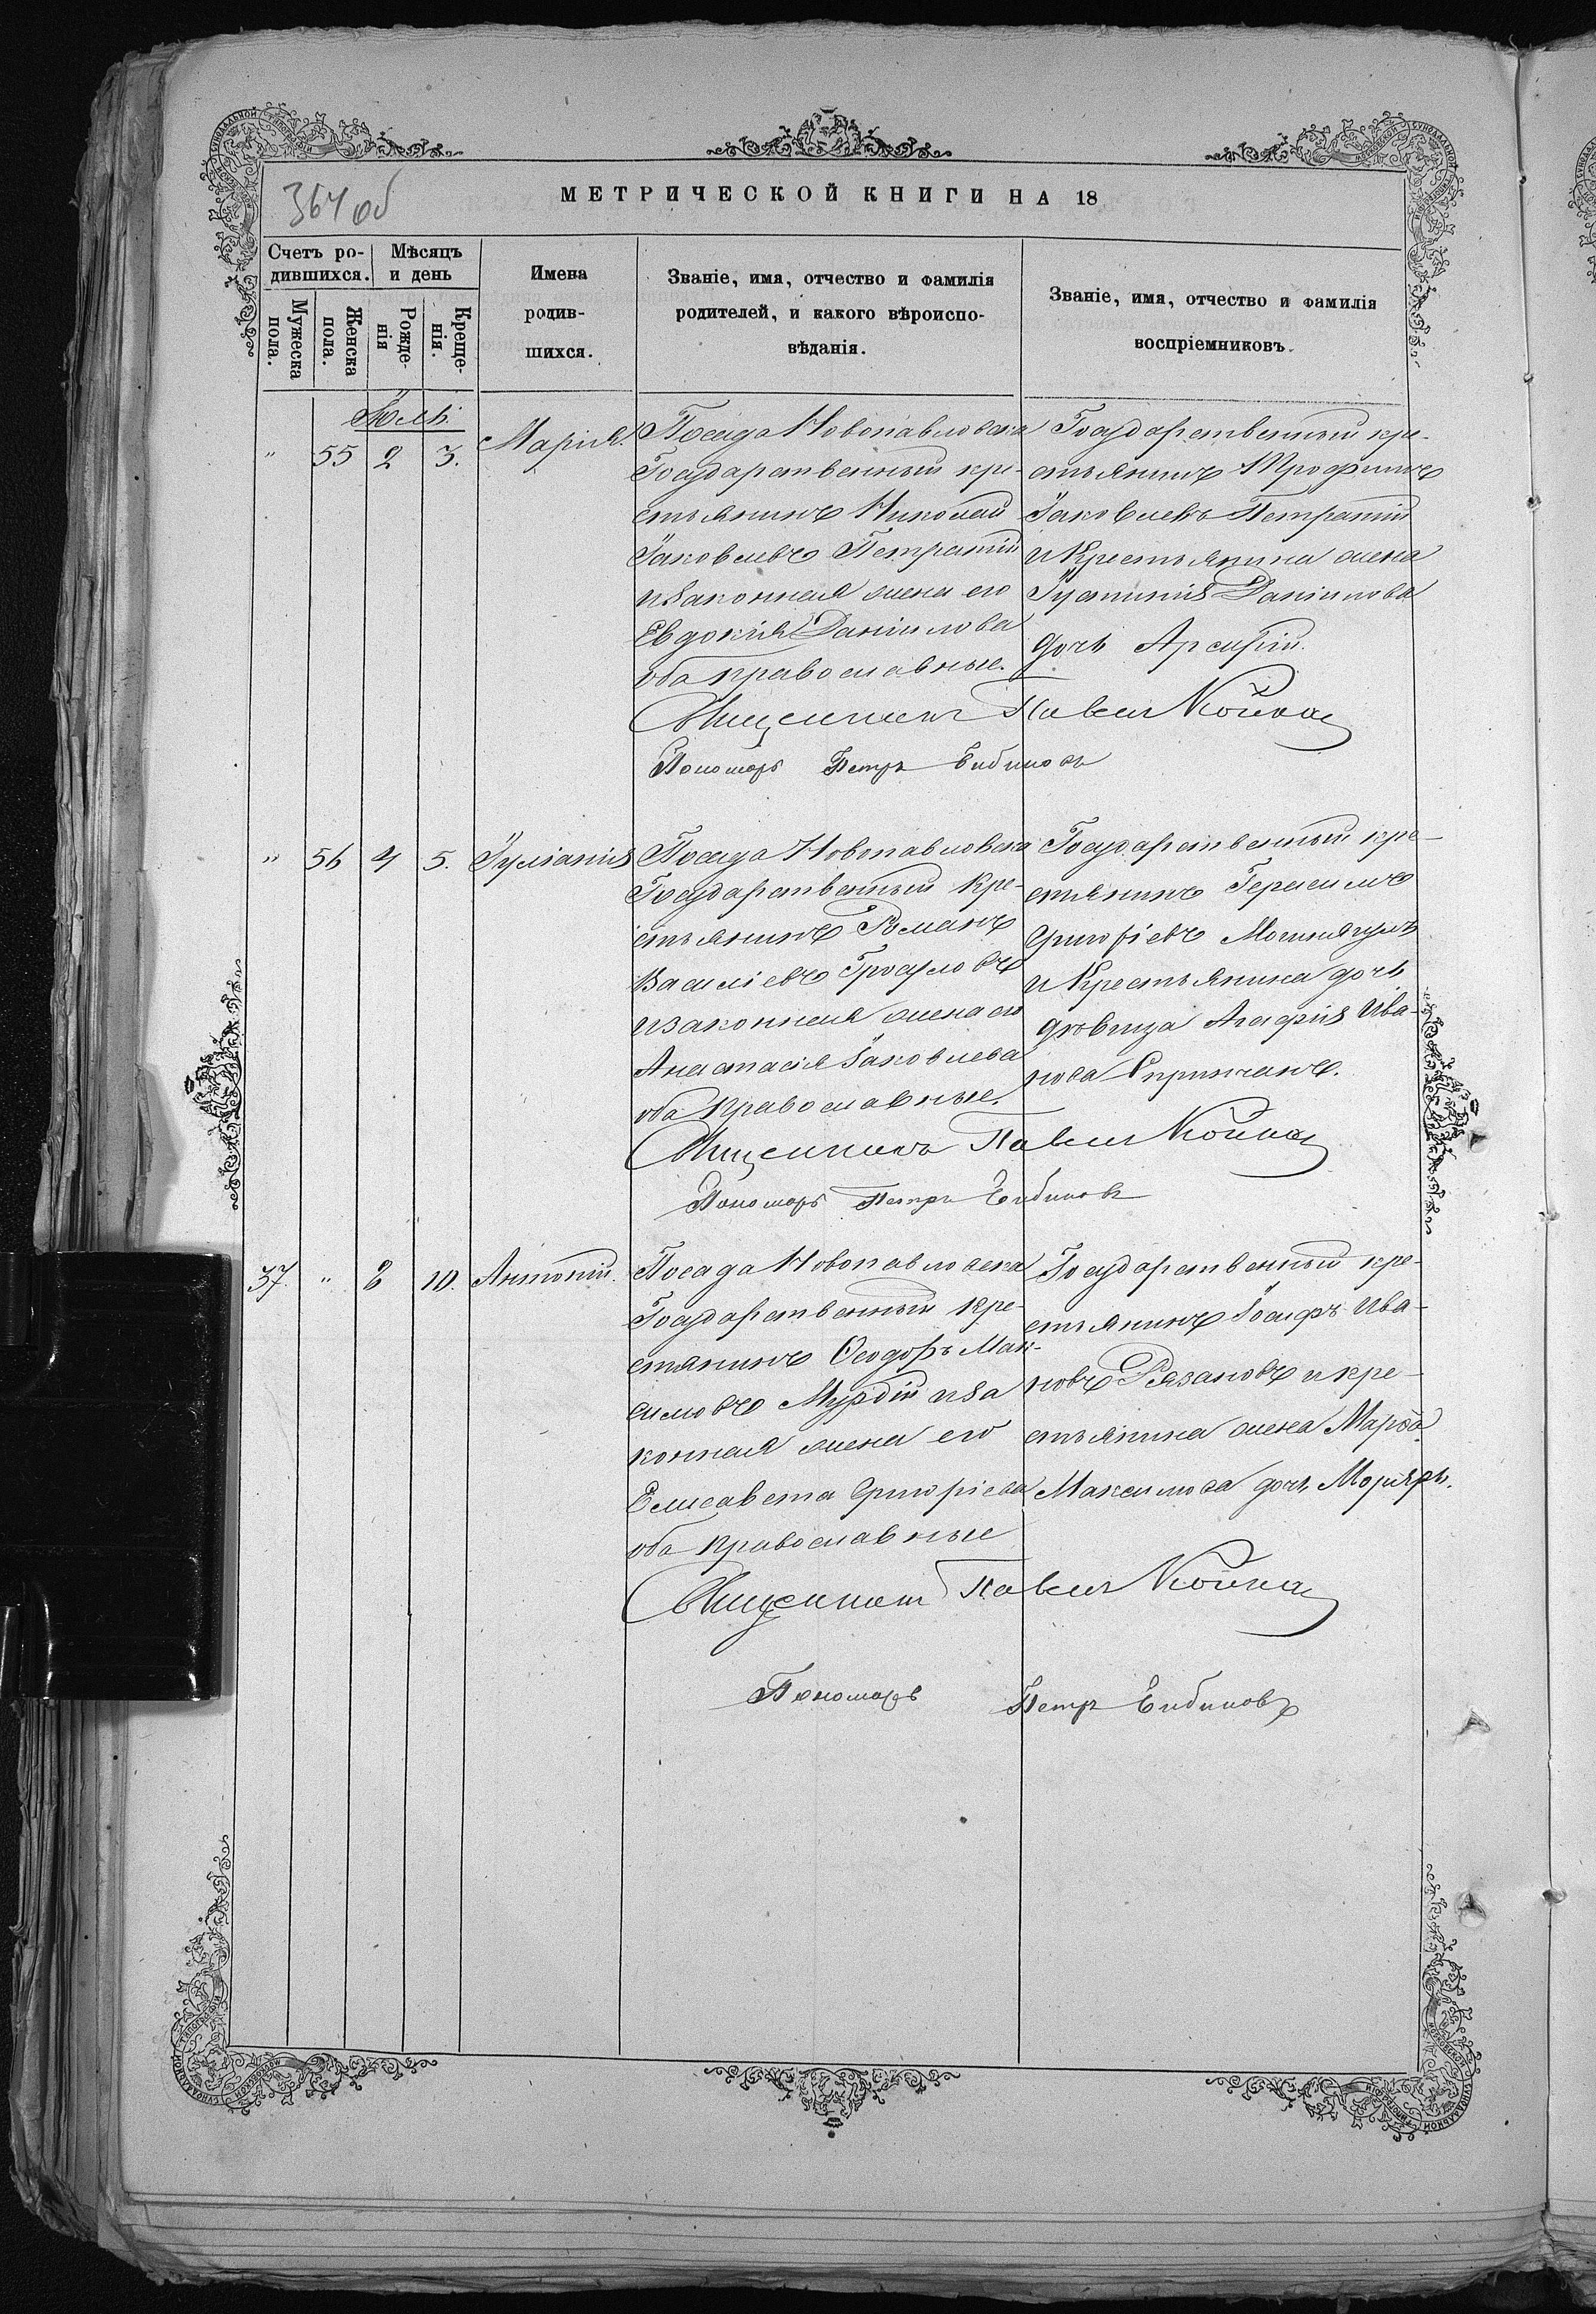 364 об
МЕТРИЧЕСКОЙ КНИГИ НА 18
Счетъ ро-
дившихся.
Мѣсяцъ
и день
Мужеска
пола.
Женска
пола.
Рожде-
нія
Креще-
нія.
Имена
родив-
шихся.
Званіе, имя, отчество и фамилія
родителей, и какого вѣроиспо-
вѣданія.
Званіе, имя, отчество и фамилія
воспріемниковъ.
Іюль
" 55 2 3. Марія.
Посада Новопавловска
Государственный кре-
стьянинъ Николай
Іаковлевъ Петратій
и законная жена его
Евдокія Даніилова
оба православные.
Государственный кре-
стьянинъ Трофимъ
Іаковлевъ Петратій
и Крестьянина жена
Іустинія Даніилова
дочь
Священникъ Павелъ Койка
Пономарь Петръ
" 56 4 5. Іуліанія
Посада Новопавловска
Государственный Кре-
стьянинъ Романъ
Василіевъ
и законная жена его
Анастасія Іаковлева
оба православные.
Государственный кре-
стьянинъ Герасимъ
Григоріевъ
и Крестьянина дочь
дѣвица Агафія Ива-
нова
Священникъ Павелъ Койка
Пономарь Петръ
37. " 8 10. Антоній.
Посада Новопавловска
Государственный кре-
стянинъ Ѳеодоръ Мак-
симовъ и за
конная жена его
Елисавета Григоріева
оба православные
Государственный кре-
стьянинъ Іосифъ Ива-
новъ Рязановъ и кре-
стьянина жена Марѳа
Максимова дочь
Священникъ Павелъ Койка
Пономарь Петръ